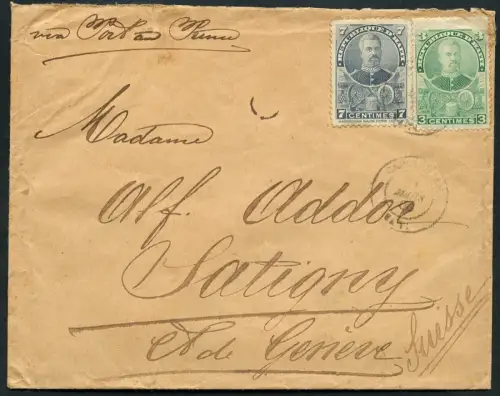 via Port au Prince
REPUBLIQUE D'HAITI
7 CENTIMES 7
REPUBLIQUE D'HAITI
3 CENTIMES 3
Madame
Alf. Addor
Satigny
Ct de Genève
Suisse